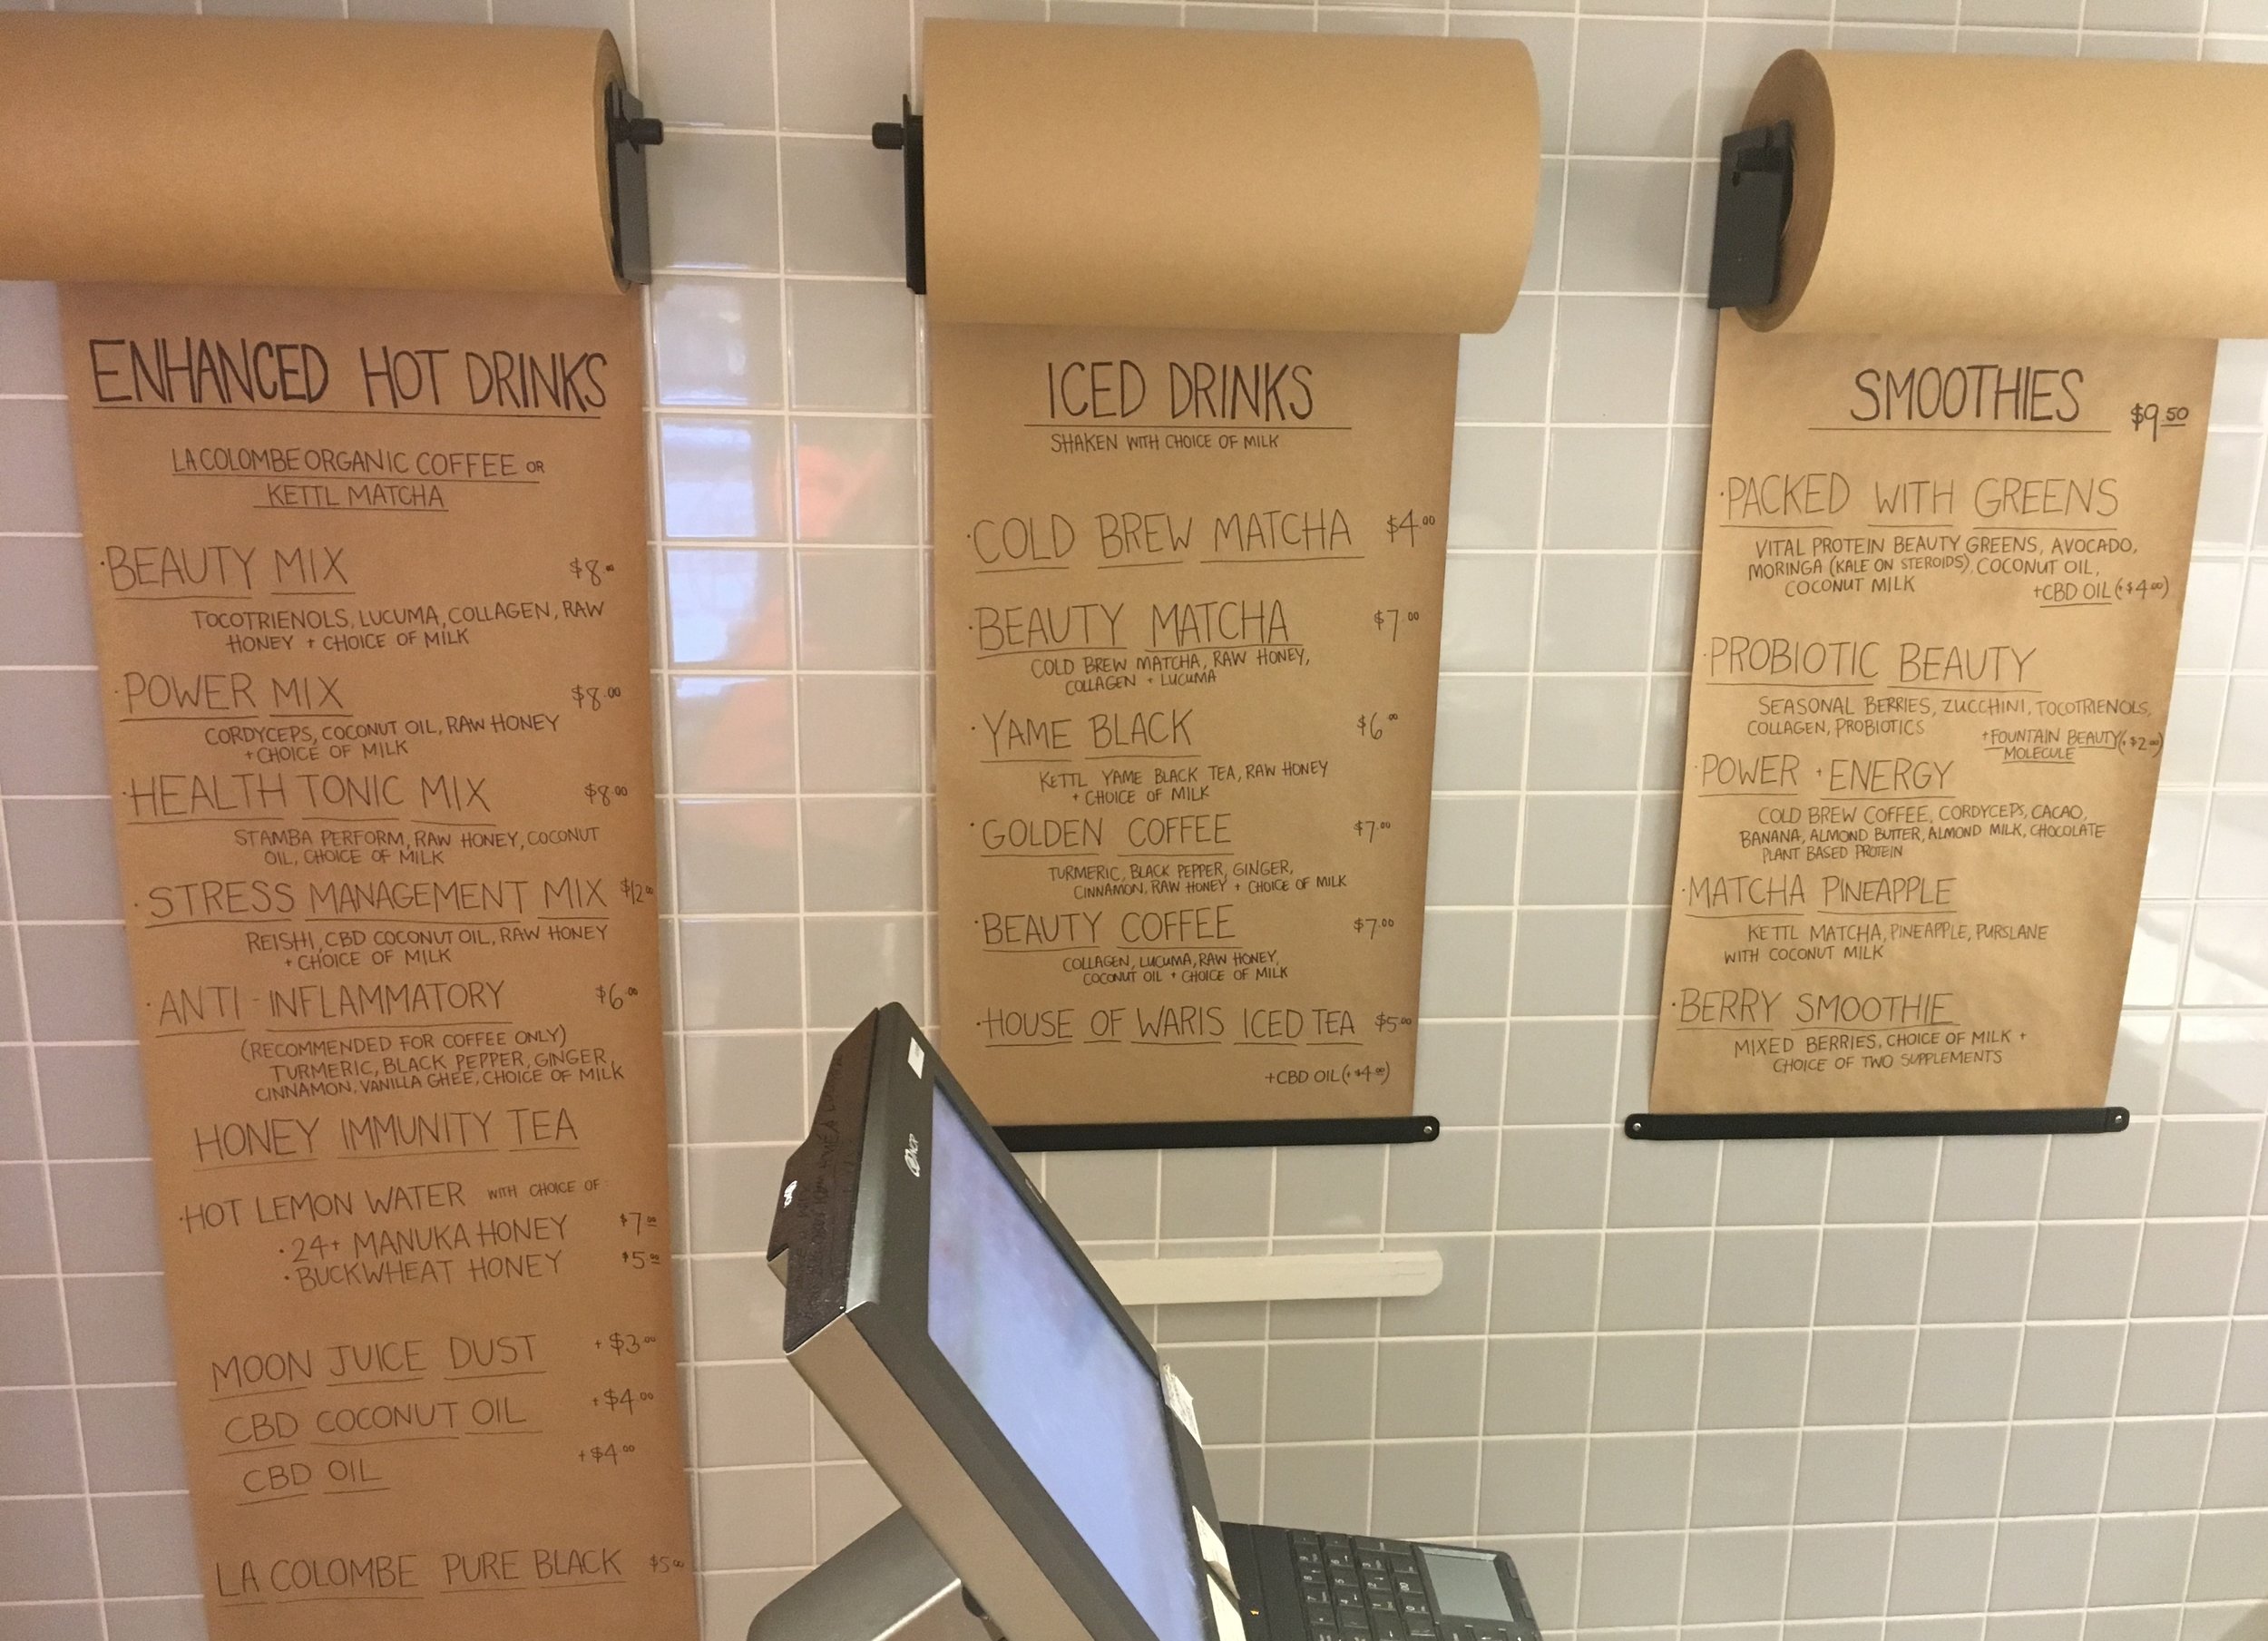 ENHANCED HOT DRINKS
LA COLOMBE ORGANIC COFFEE OR
KETTL MATCHA
· BEAUTY MIX $8.00
TOCOTRIENOLS, LUCUMA, COLLAGEN, RAW
HONEY + CHOICE OF MILK
· POWER MIX $8.00
CORDYCEPS, COCONUT OIL, RAW HONEY
+ CHOICE OF MILK
· HEALTH TONIC MIX $8.00
STAMBA PERFORM, RAW HONEY, COCONUT
OIL, CHOICE OF MILK
· STRESS MANAGEMENT MIX $12.00
REISHI, CBD COCONUT OIL, RAW HONEY
+ CHOICE OF MILK
· ANTI-INFLAMMATORY $6.00
(RECOMMENDED FOR COFFEE ONLY)
TURMERIC, BLACK PEPPER, GINGER,
CINNAMON, VANILLA GHEE, CHOICE OF MILK
HONEY IMMUNITY TEA
· HOT LEMON WATER WITH CHOICE OF:
· 24+ MANUKA HONEY $7.00
· BUCKWHEAT HONEY $5.00
MOON JUICE DUST + $3.00
CBD COCONUT OIL + $4.00
CBD OIL + $4.00
LA COLOMBE PURE BLACK $5.00
ICED DRINKS
SHAKEN WITH CHOICE OF MILK
· COLD BREW MATCHA $4.00
· BEAUTY MATCHA $7.00
COLD BREW MATCHA, RAW HONEY,
COLLAGEN + LUCUMA
· YAME BLACK $6.00
KETTL YAME BLACK TEA, RAW HONEY
+ CHOICE OF MILK
· GOLDEN COFFEE $7.00
TURMERIC, BLACK PEPPER, GINGER,
CINNAMON, RAW HONEY + CHOICE OF MILK
· BEAUTY COFFEE $7.00
COLLAGEN, LUCUMA, RAW HONEY,
COCONUT OIL + CHOICE OF MILK
· HOUSE OF WARIS ICED TEA $5.00
+ CBD OIL (+ $4.00)
SMOOTHIES $9.50
· PACKED WITH GREENS
VITAL PROTEIN BEAUTY GREENS, AVOCADO,
MORINGA (KALE ON STEROIDS), COCONUT OIL,
COCONUT MILK +CBD OIL (+$4.00)
· PROBIOTIC BEAUTY
SEASONAL BERRIES, ZUCCHINI, TOCOTRIENOLS,
COLLAGEN, PROBIOTICS
+ FOUNTAIN BEAUTY (+$2.00)
MOLECULE
· POWER + ENERGY
COLD BREW COFFEE, CORDYCEPS, CACAO,
BANANA, ALMOND BUTTER, ALMOND MILK, CHOCOLATE
PLANT BASED PROTEIN
· MATCHA PINEAPPLE
KETTL MATCHA, PINEAPPLE, PURSLANE
WITH COCONUT MILK
· BERRY SMOOTHIE
MIXED BERRIES, CHOICE OF MILK +
CHOICE OF TWO SUPPLEMENTS